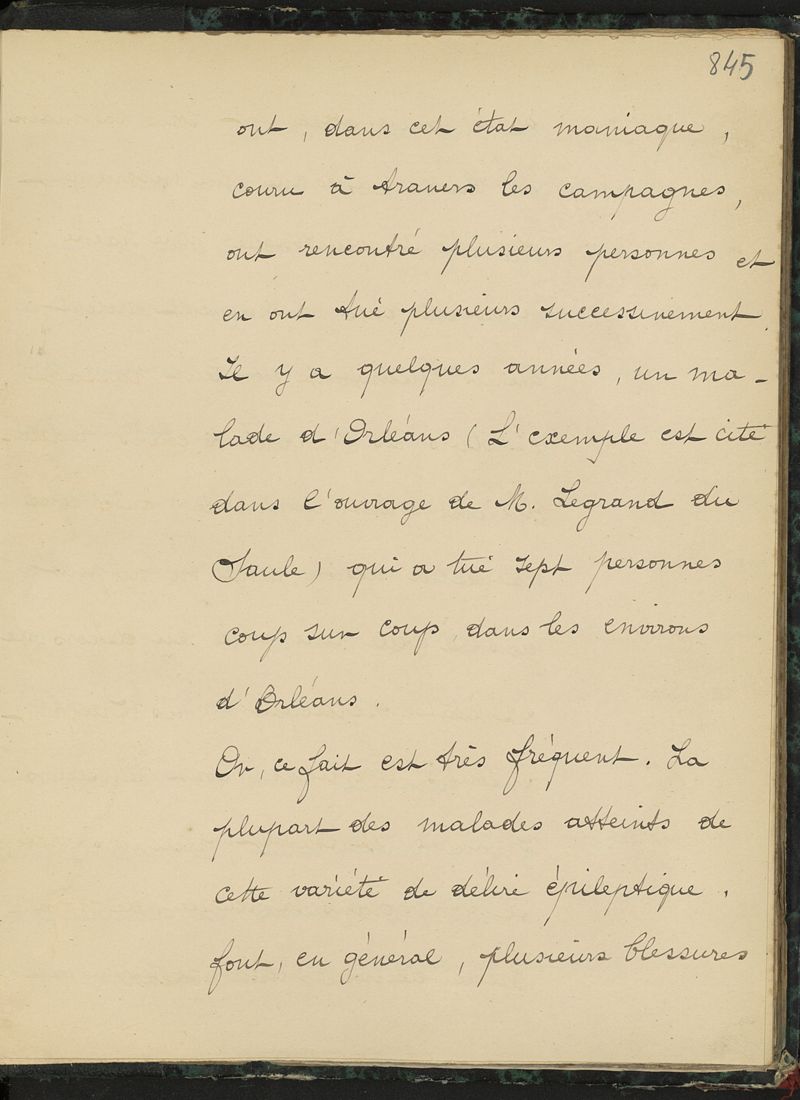 845
ont, dans cet état maniaque,
couru à travers les campagnes,
ont rencontré plusieurs personnes et
en ont tué plusieurs successivement.
Il y a quelques années, un ma-
lade d'Orléans (L'exemple est cité
dans l'ouvrage de M. Legrand du
Saule) qui a tué sept personnes
coup sur coup, dans les environs
d'Orléans.
Or, ce fait est très fréquent. La
plupart des malades atteints de
cette variété de délire épileptique.
font, en général, plusieurs blessures